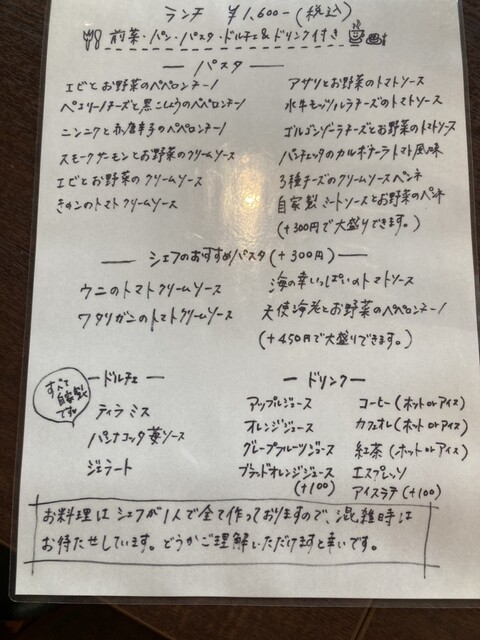 ランチ ¥1,600-(税込)
前菜・パン・パスタ・ドルチェ&ドリンク付き
パスタ
エビとお野菜のペペロンチーノ
ペコリーノチーズと黒こしょうのペペロンチーノ
ニンニクと赤唐辛子のペペロンチーノ
スモークサーモンとお野菜のクリームソース
エビとお野菜のクリームソース
きのこのトマトクリームソース
アサリとお野菜のトマトソース
水牛モッツァレラチーズのトマトソース
ゴルゴンゾーラチーズとお野菜のトマトソース
パンチェッタのカルボナーラトマト風味
3種チーズのクリームソースペンネ
自家製ミートソースとお野菜のペンネ
(+300円で大盛りできます。)
シェフのおすすめパスタ(+300円)
ウニのトマトクリームソース
ワタリガニのトマトクリームソース
海の幸いっぱいのトマトソース
天使海老とお野菜のペペロンチーノ
(+450円で大盛りできます。)
すべて
自家製
です♡
ドルチェ
ティラミス
パンナコッタ苺ソース
ジェラート
ドリンク
アップルジュース
オレンジジュース
グレープフルーツジュース
ブラッドオレンジジュース
(+100)
コーヒー(ホットorアイス)
カフェオレ(ホットorアイス)
紅茶(ホットorアイス)
エスプレッソ
アイスラテ(+100)
お料理はシェフが1人で全て作っておりますので、混雑時は
お待たせしています。どうかご理解いただけますと幸いです。